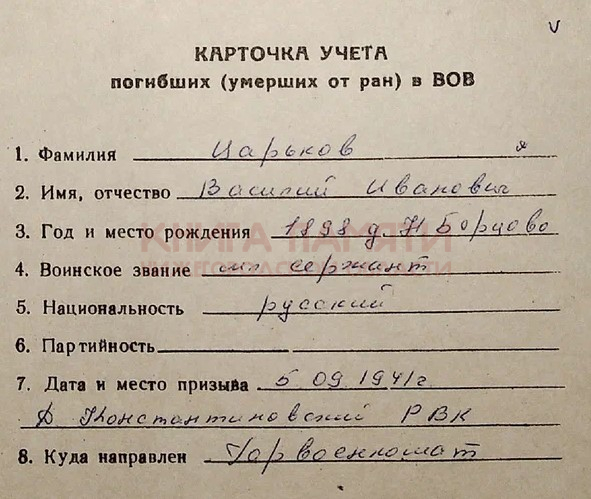 V
КАРТОЧКА УЧЕТА
погибших (умерших от ран) в ВОВ
1. Фамилия Царьков я
2. Имя, отчество Василий Иванович
3. Год и место рождения 1898 д. Н Борцово
КНИГА ПАМЯТИ
НИЖЕГОРОДСКОЙ ОБЛАСТИ
4. Воинское звание мл сержант
5. Национальность русский
6. Партийность
7. Дата и место призыва 5 09 1941г
Д Константиновский РВК
8. Куда направлен Горвоенкомат